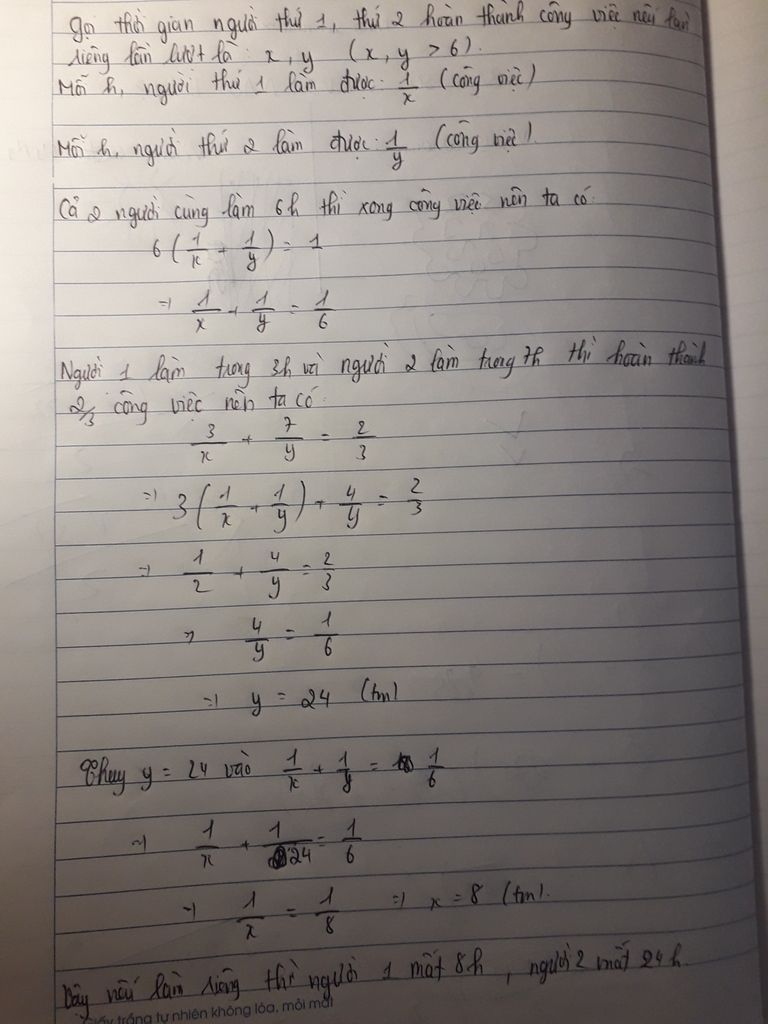 Gọi thời gian người thứ 1, thứ 2 hoàn thành công việc nếu làm
riêng lần lượt là: x, y (x, y > 6).
Mỗi h, người thứ 1 làm được: 1/x (công việc)
Mỗi h, người thứ 2 làm được: 1/y (công việc).
Cả 2 người cùng làm 6h thì xong công việc nên ta có:
6(1/x + 1/y) = 1
=> 1/x + 1/y = 1/6
Người 1 làm trong 3h và người 2 làm trong 7h thì hoàn thành
2/3 công việc nên ta có:
3/x + 7/y = 2/3
=> 3(1/x + 1/y) + 4/y = 2/3
=> 1/2 + 4/y = 2/3
=> 4/y = 1/6
=> y = 24 (tm)
Thay y = 24 vào 1/x + 1/y = 1/6
=> 1/x + 1/24 = 1/6
=> 1/x = 1/8 => x = 8 (tm).
Vậy nếu làm riêng thì người 1 mất 8h, người 2 mất 24h.
Giấy trắng tự nhiên không lóa, mỏi mắt